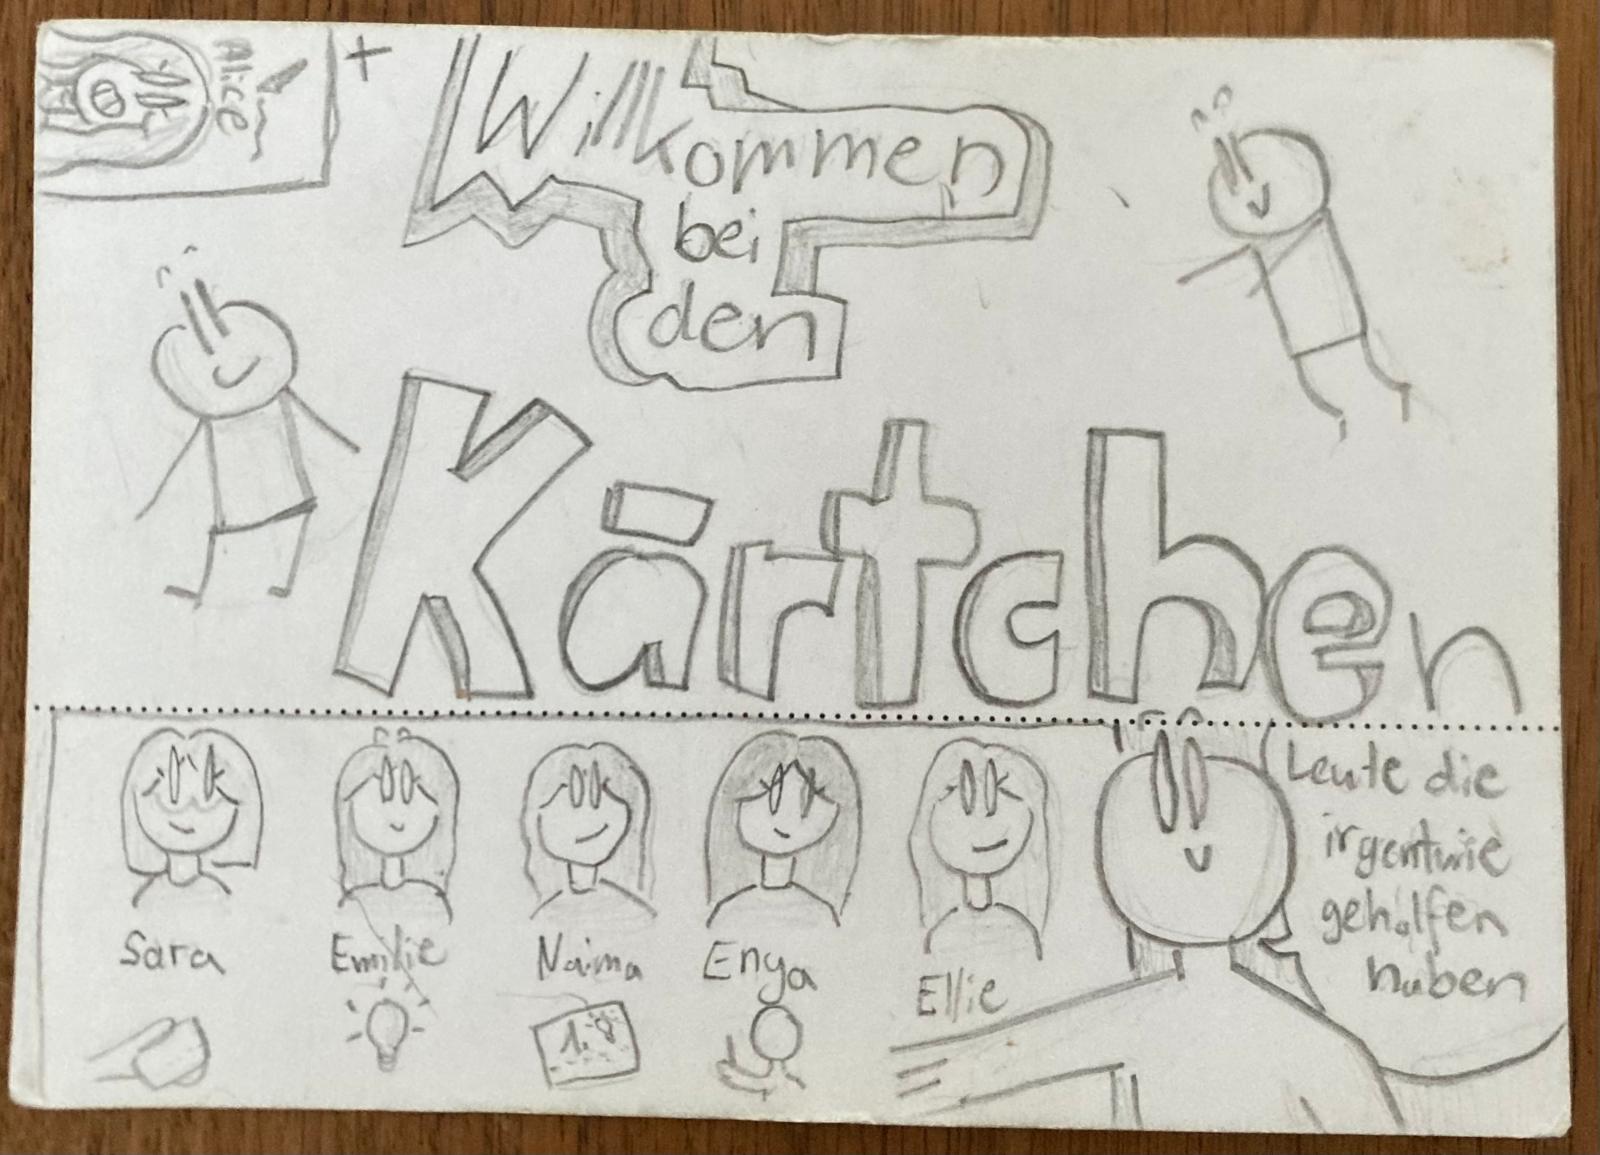 Alice
+
Willkommen
bei
den
Kärtchen
Sara
Emilie
Naima
Enya
Ellie
1.
Leute die
irgentwie
geholfen
haben